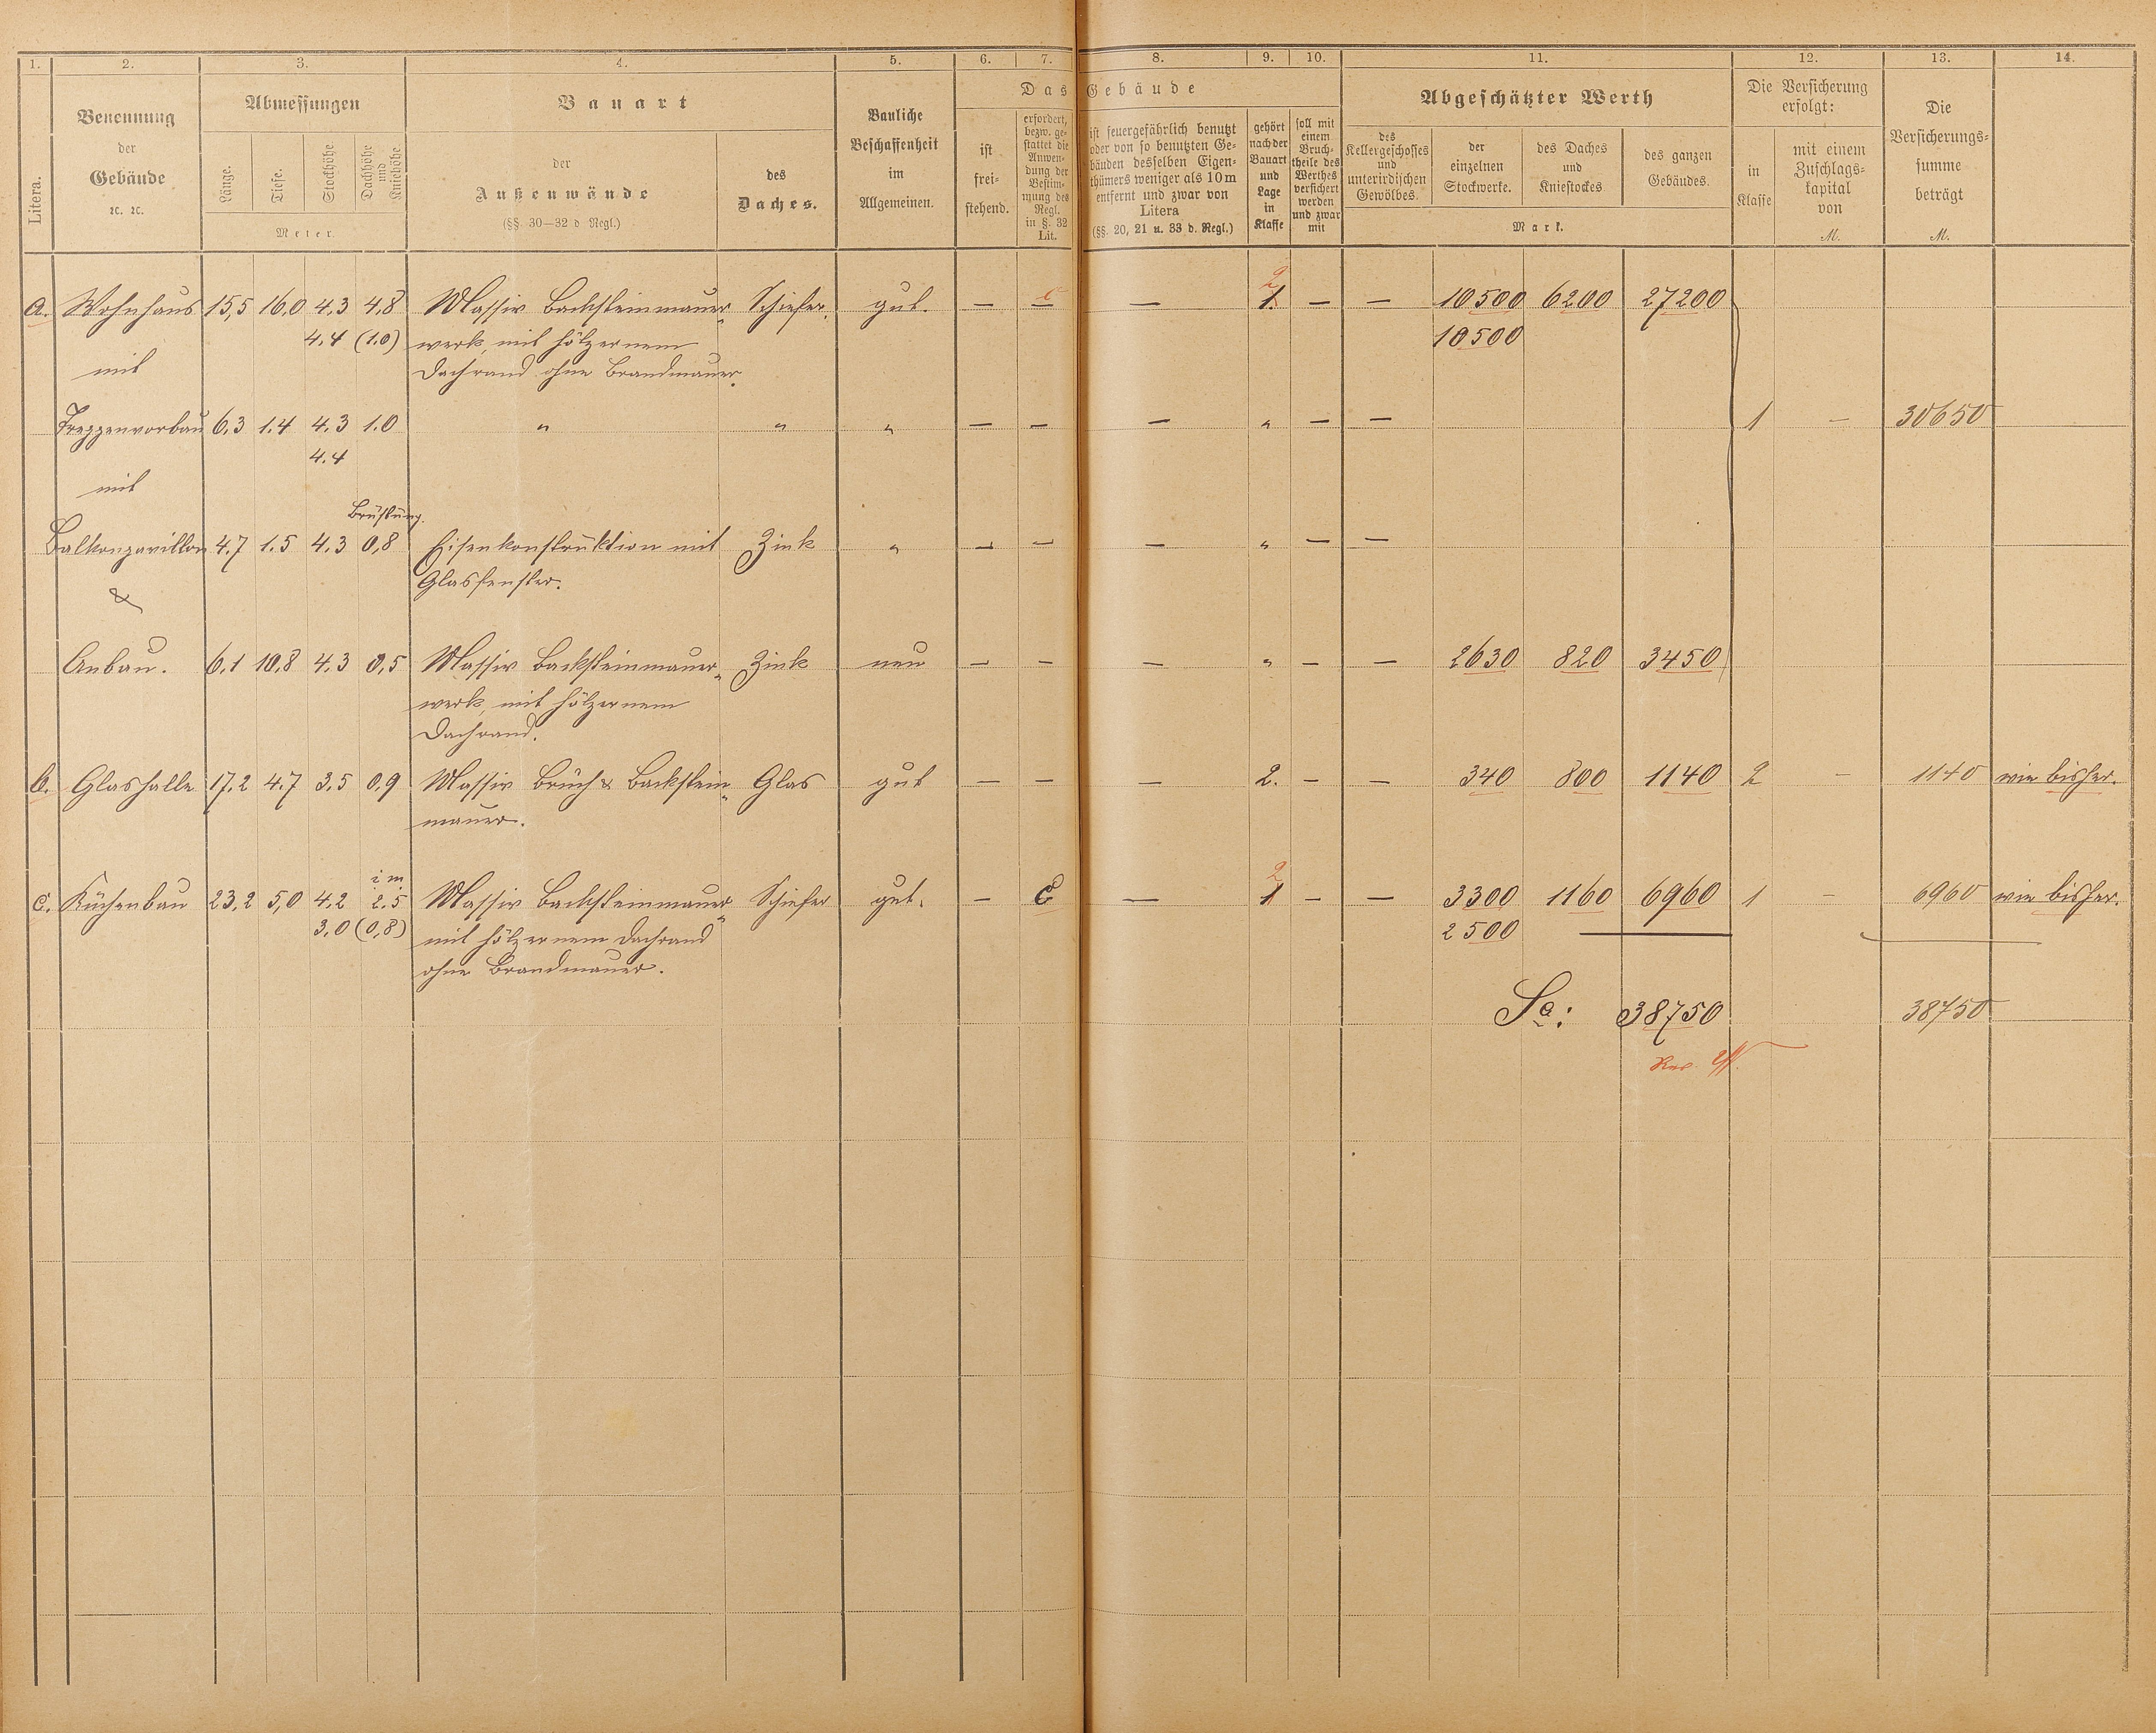 1. 2. 3. 4. 5. 6. 7. 8. 9. 10. 11. 12. 13. 14.
Litera.
Benennung
der
Gebäude
ꝛc. ꝛc.
Abmessungen
Länge.
Tiefe.
Stockhöhe
Dachhöhe
und
Kniehöhe
Meter.
Bauart
der
Außenwände
(§§. 30—32 d Regl.)
des
Daches.
Bauliche
Beschaffenheit
im
Allgemeinen.
Das Gebäude
ist
frei-
stehend.
erfordert,
bezw. ge-
stattet die
Anwen-
dung der
Bestim-
mung des
Regl.
in §. 32
Lit.
ist feuergefährlich benutzt
oder von so benutzten Ge-
bäuden desselben Eigen-
thümers weniger als 10 m
entfernt und zwar von
Litera
(§§. 20, 21 u. 33 d. Regl.)
gehört
nach der
Bauart
und
Lage
in
Klasse
soll mit
einem
Bruch-
theile des
Werthes
versichert
werden
und zwar
mit
Abgeschätzter Werth
des
Kellergeschosses
und
unterirdischen
Gewölbes.
der
einzelnen
Stockwerke.
des Daches
und
Kniestockes
des ganzen
Gebäudes.
Mark.
Die Versicherung
erfolgt:
in
Klasse
mit einem
Zuschlags-
kapital
von
M.
Die
Versicherungs-
summe
beträgt
M.
2
a. Wohnhaus 15,5 16,0 4,3 4,8 Massiv Backsteinmauer„ Schiefer. gut. — c — — 1. — — 10500 6200 27200
4,4 (1.0) werk, mit hölzernem 10500
mit Dachrand ohne Brandmauer.
Treppenvorbau 6,3 1.4 4.3 1.0 " " " — — — " — — 1 — 30650
4.4
mit
Brüstung.
Balkonpavillon 4,7 1.5 4.3 0,8 Eisenkonstruktion mit Zink " — — — " — —
& Glasfenster.
Anbau. 6,1 10,8 4.3 0,5 Massiv Backsteinmauer„ Zink neu — — — " — — 2630 820 3450
werk, mit hölzernem
Dachrand.
b. Glashalle 17,2 4.7 3,5 0,9 Massiv Bruch & Backstein„ Glas gut — — — 2. — — 340 800 1140 2 — 1140 wie bisher.
mauer.
i m 2
c. Küchenbau 23,2 5,0 4.2 2.5 Massiv Backsteinmauer„ Schiefer gut. — c — 1 — — 3300 1160 6960 1 — 6960 wie bisher.
3,0 (0,8) mit hölzernem Dachrand 2500
ohne Brandmauer.
Sa: 38750 38750
Rev.